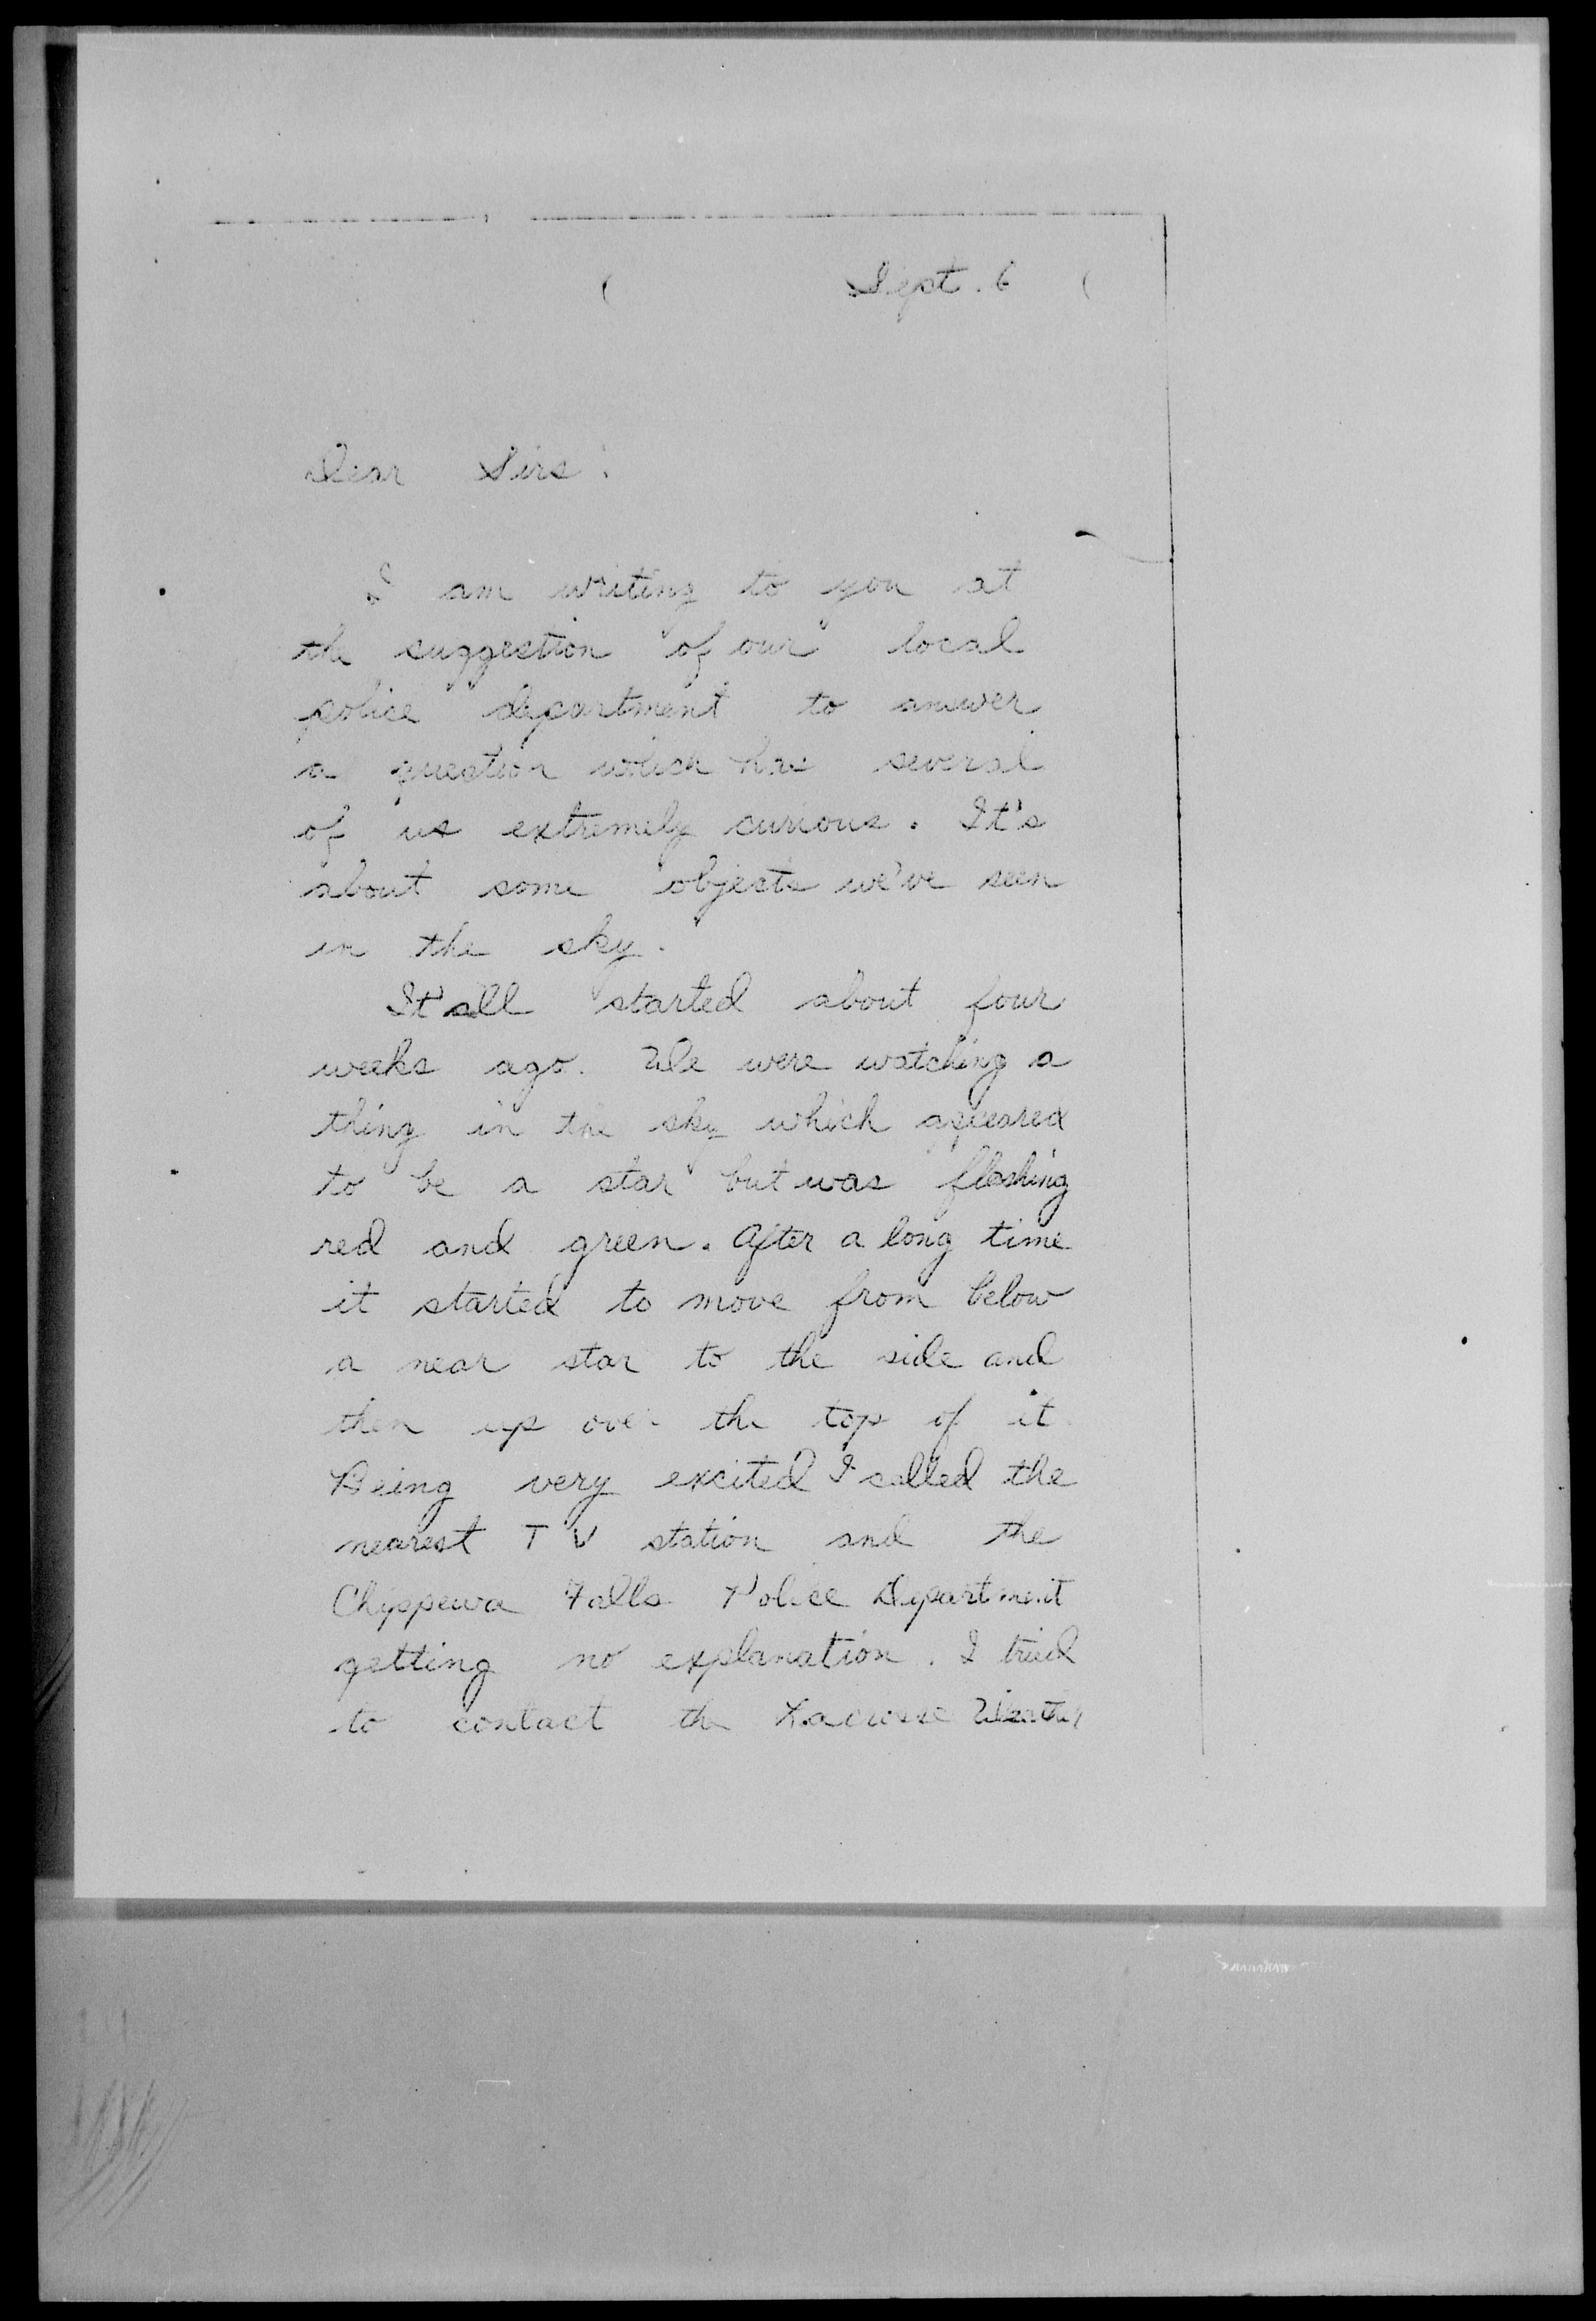 Sept. 6
Dear Sirs:
I am writing to you at
the suggestion of our local
police department to answer
a question which has several
of us extremely curious. It's
about some objects we've seen
in the sky.
It all started about four
weeks ago. We were watching a
thing in the sky which appeared
to be a star but was flashing
red and green. After a long time
it started to move from below
a near star to the side and
then up over the top of it.
Being very excited I called the
nearest TV station and the
Chippewa Falls Police Department
getting no explanation. I tried
to contact the Lacrosse Weather